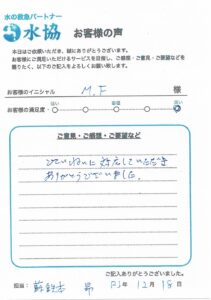 水の救急パートナー
水協 お客様の声
本日はご依頼いただき、誠にありがとうございます。
お客様にご満足いただけるサービスを目指し、ご感想・ご意見・ご要望などを
賜りたく、以下のご記入をよろしくお願い致します。
お客様のイニシャル M.F 様
お客様の満足度 低い 普通 高い
ご意見・ご感想・ご要望など
ていねいに対応していただき
ありがとうございました。
ご記入ありがとうございました。
担当: 年12月18日